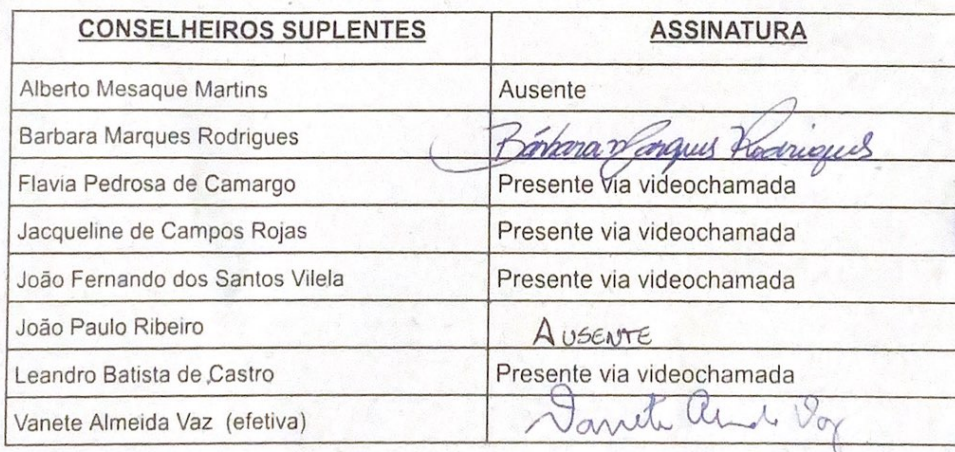 CONSELHEIROS SUPLENTES ASSINATURA
Alberto Mesaque Martins Ausente
Barbara Marques Rodrigues Bárbara Marques Rodrigues
Flavia Pedrosa de Camargo Presente via videochamada
Jacqueline de Campos Rojas Presente via videochamada
João Fernando dos Santos Vilela Presente via videochamada
João Paulo Ribeiro AUSENTE
Leandro Batista de Castro Presente via videochamada
Vanete Almeida Vaz (efetiva) Vanete Vaz